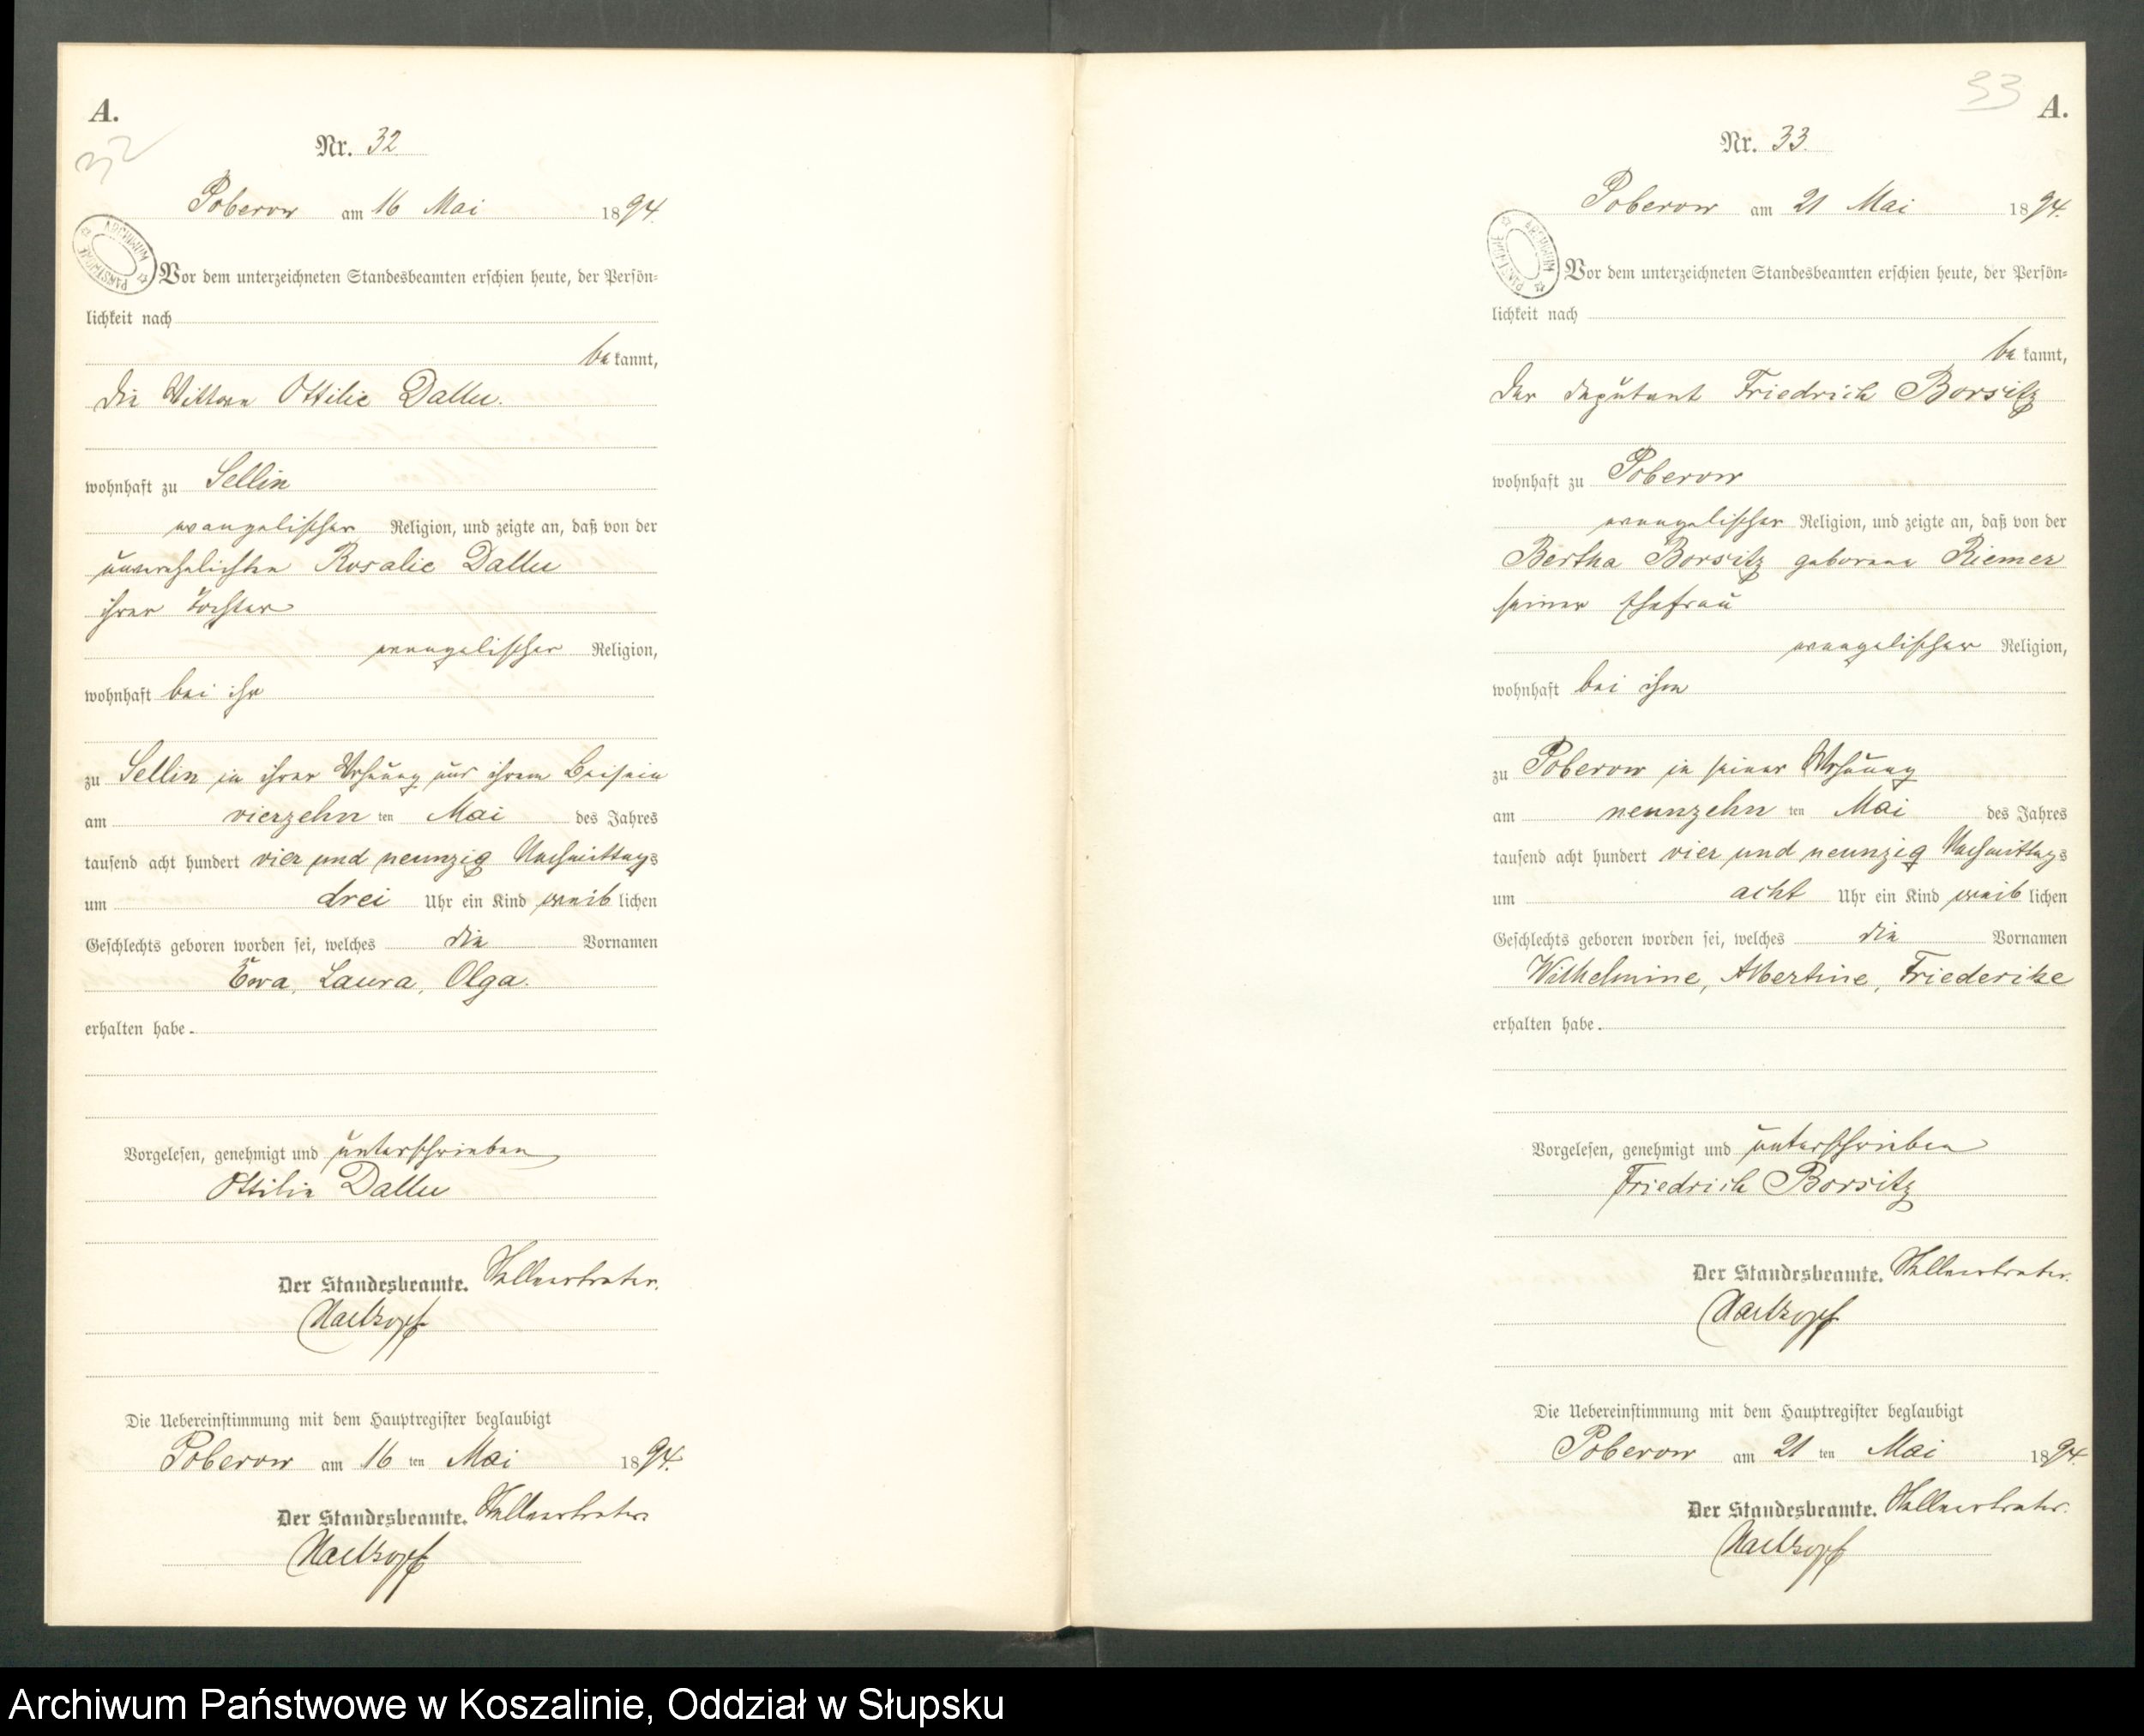 A.
32
Nr. 32.
Poberow am 16 Mai 1894.
ARCHIWUM PAŃSTWOWE
Vor dem unterzeichneten Standesbeamten erschien heute, der Persön=
lichkeit nach
bekannt,
die Wittwe Ottilie
wohnhaft zu Sellin
evangelischer Religion, und zeigte an, daß von der
unverehelichten Rosalie
ihrer Tochter
evangelischer Religion,
wohnhaft bei ihr
zu Sellin in ihrer Wohnung und ihrem Beisein
am vierzehn ten Mai des Jahres
tausend acht hundert vier und neunzig Nachmittags
um drei Uhr ein Kind weiblichen
Geschlechts geboren worden sei, welches die Vornamen
Ewa, Laura, Olga.
erhalten habe.
Vorgelesen, genehmigt und unterschrieben
Ottilie
Der Standesbeamte. Stellvertreter.
Die Uebereinstimmung mit dem Hauptregister beglaubigt
Poberow am 16 ten Mai 1894.
Der Standesbeamte. Stellvertreter.
33 A.
Nr. 33.
Poberow am 21 Mai 1894.
ARCHIWUM PAŃSTWOWE
Vor dem unterzeichneten Standesbeamten erschien heute, der Persön=
lichkeit nach
bekannt,
der Deputant Friedrich Borsitz
wohnhaft zu Poberow
evangelischer Religion, und zeigte an, daß von der
Bertha Borsitz geborene Riemer
seiner Ehefrau
evangelischer Religion,
wohnhaft bei ihm
zu Poberow in seiner Wohnung
am neunzehn ten Mai des Jahres
tausend acht hundert vier und neunzig Nachmittags
um acht Uhr ein Kind weiblichen
Geschlechts geboren worden sei, welches die Vornamen
Wilhelmine, Albertine, Friederike
erhalten habe.
Vorgelesen, genehmigt und unterschrieben
Friedrich Borsitz
Der Standesbeamte. Stellvertreter.
Die Uebereinstimmung mit dem Hauptregister beglaubigt
Poberow am 21 ten Mai 1894.
Der Standesbeamte. Stellvertreter.
Archiwum Państwowe w Koszalinie, Oddział w Słupsku